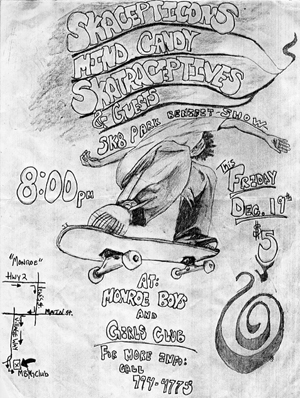 SKACEPTICONS
MIND CANDY
SKATRACEPTIVES
& GUESTS
SK8 PARK BENEFIT SHOW
8:00 PM
THIS
FRIDAY
DEC. 19th
$5
AT:
MONROE BOYS
AND
GIRLS CLUB
FOR MORE INFO:
CALL
794-4775
"MONROE"
HWY 2
MAIN ST.